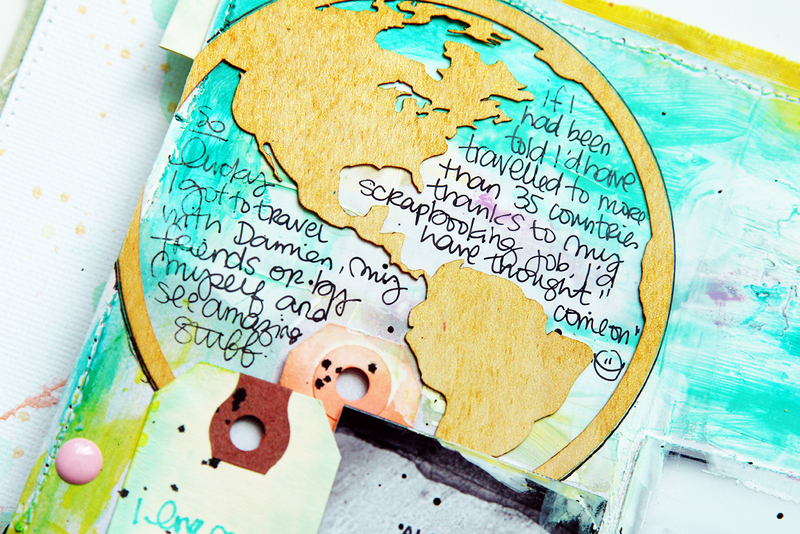 if I
had been
told I'd have
travelled to more
than 35 countries
thanks to my
scrapbooking job, I'd
have thought
"come on"
so
lucky
I got to travel
with Damien, my
friends or by
myself and
see amazing
stuff.